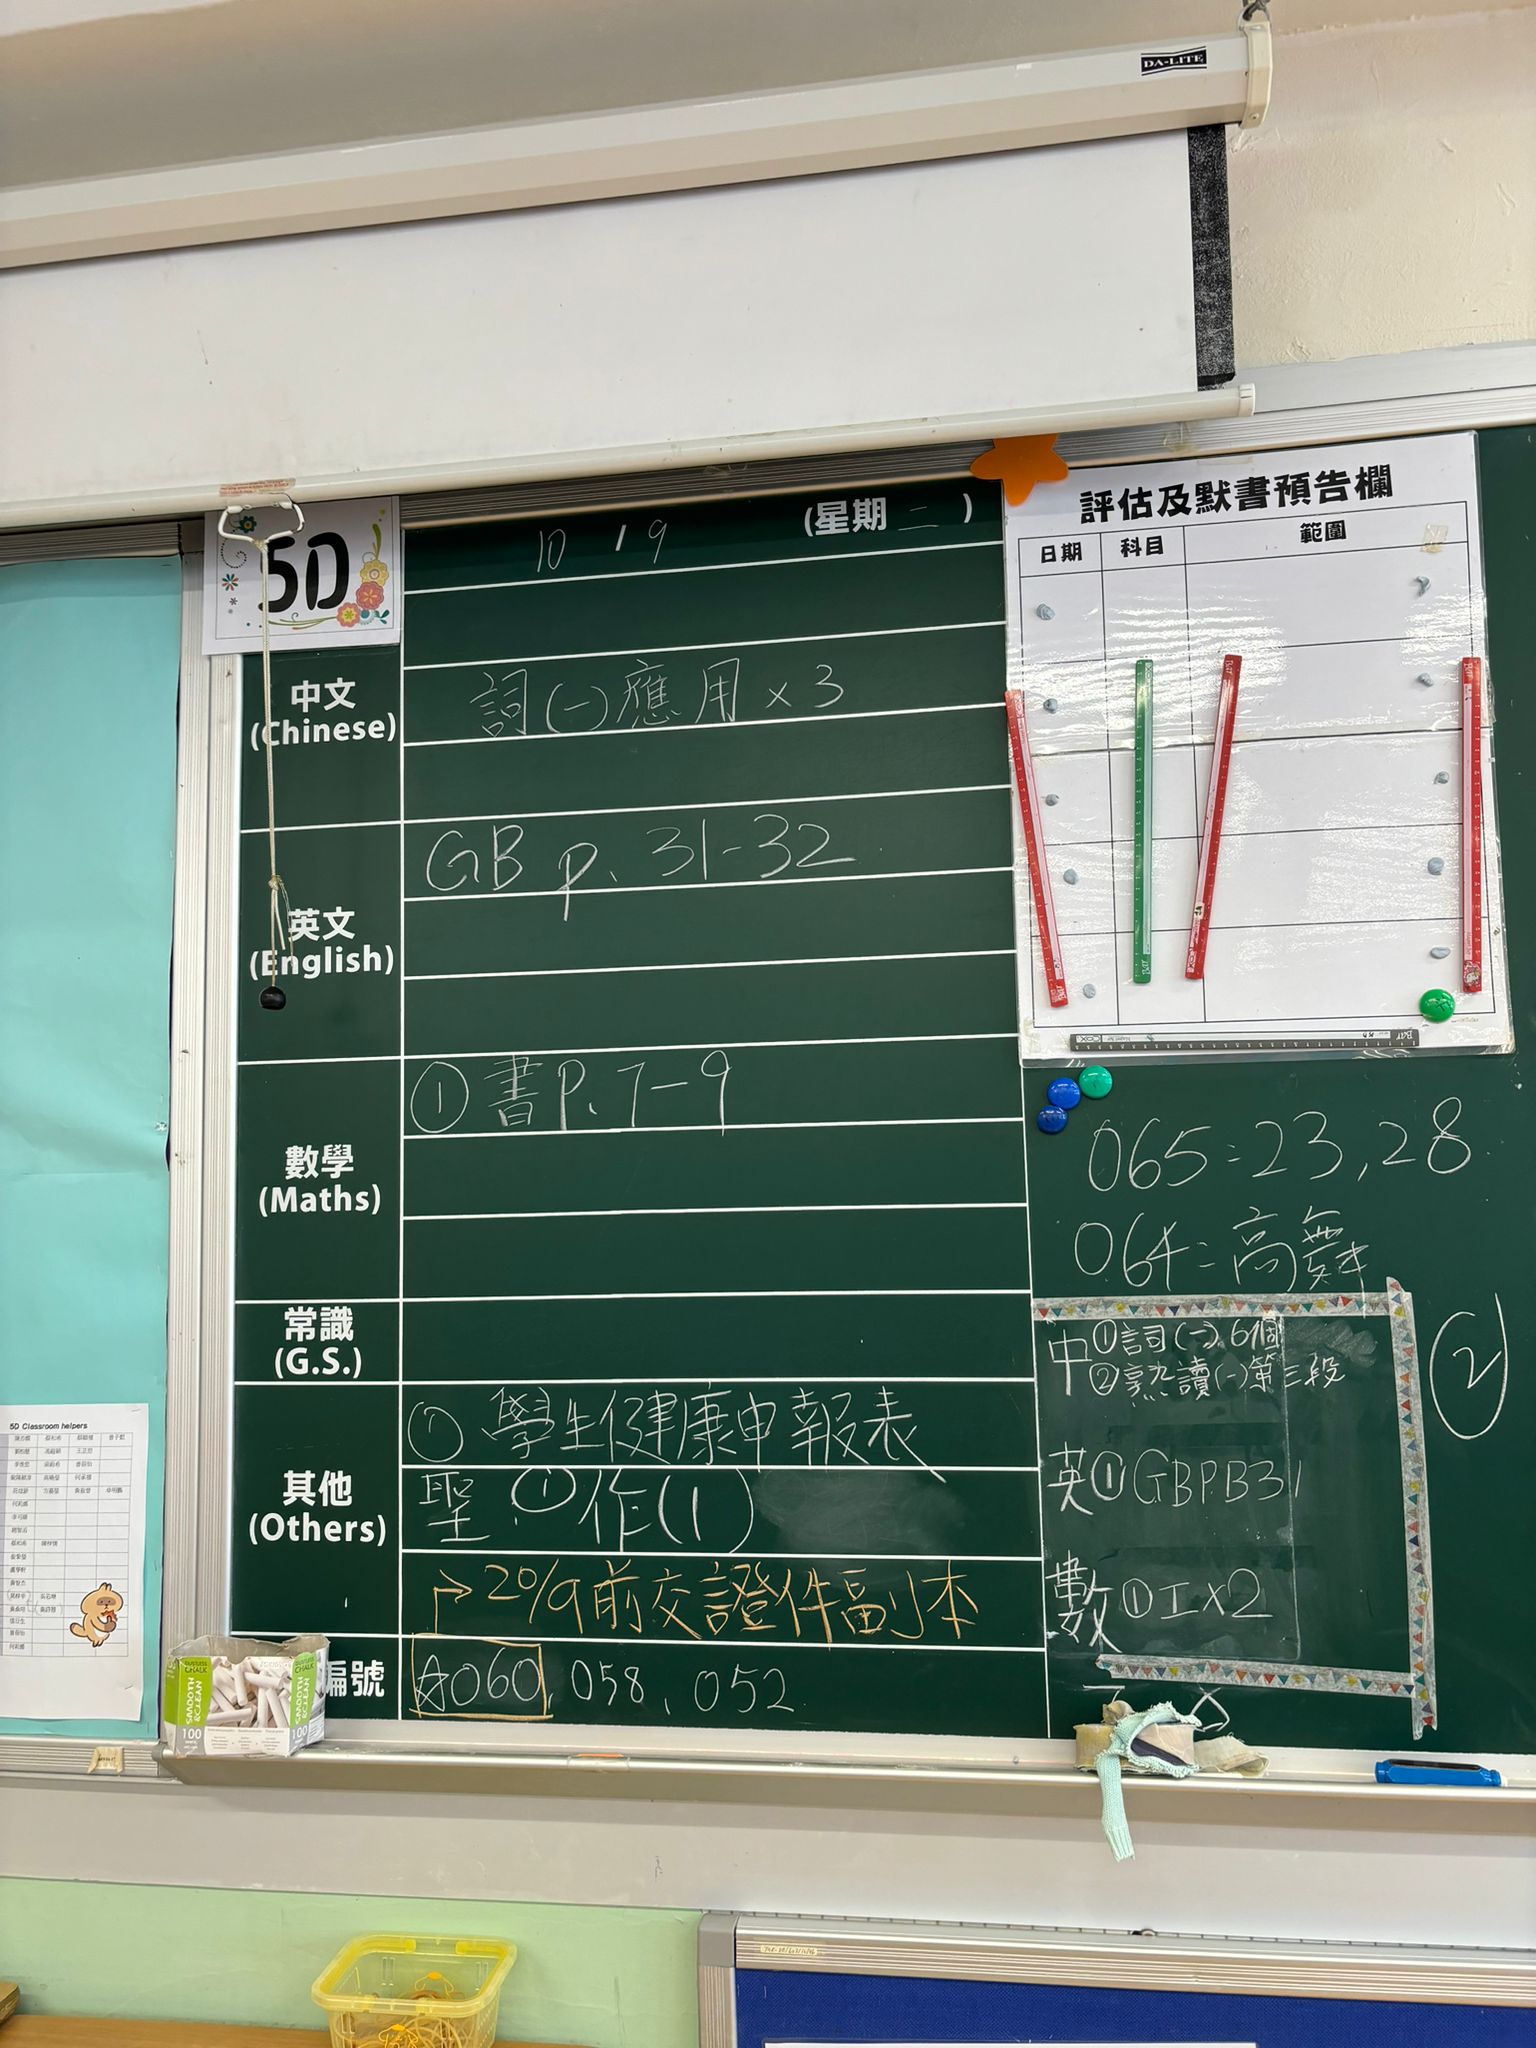 DA-LITE
5D
10 / 9 (星期 二 )
評估及默書預告欄
日期 科目 範圍
中文
(Chinese)
詞(一)應用 x 3
英文
(English)
GB p. 31-32
數學
(Maths)
① 書P. 7-9
常識
(G.S.)
其他
(Others)
① 學生健康申報表
聖 ① 作(1)
→ 20/9前交證件副本
編號
☆060, 058, 052
065 = 23, 28
064 = 高舞
中 ① 詞(一) 6個
② 熟讀(一)第三段
英 ① GBPB31
數 ① I x2
②
5D Classroom helpers
SMOOTH & CLEAN
CHALK
100
100